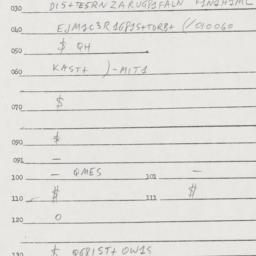 030 DIS+TESRNZARUGP1FALN FINIHIMC
040 EJM1C3R1G815+TORB+ (/010060
050 $ QH
060 KAST+ )-MIT1
070 $
$
090
091 —
100 — QMES 101 —
110 $ 111 $
120 0
130 $ QGP1ST+ OW1S